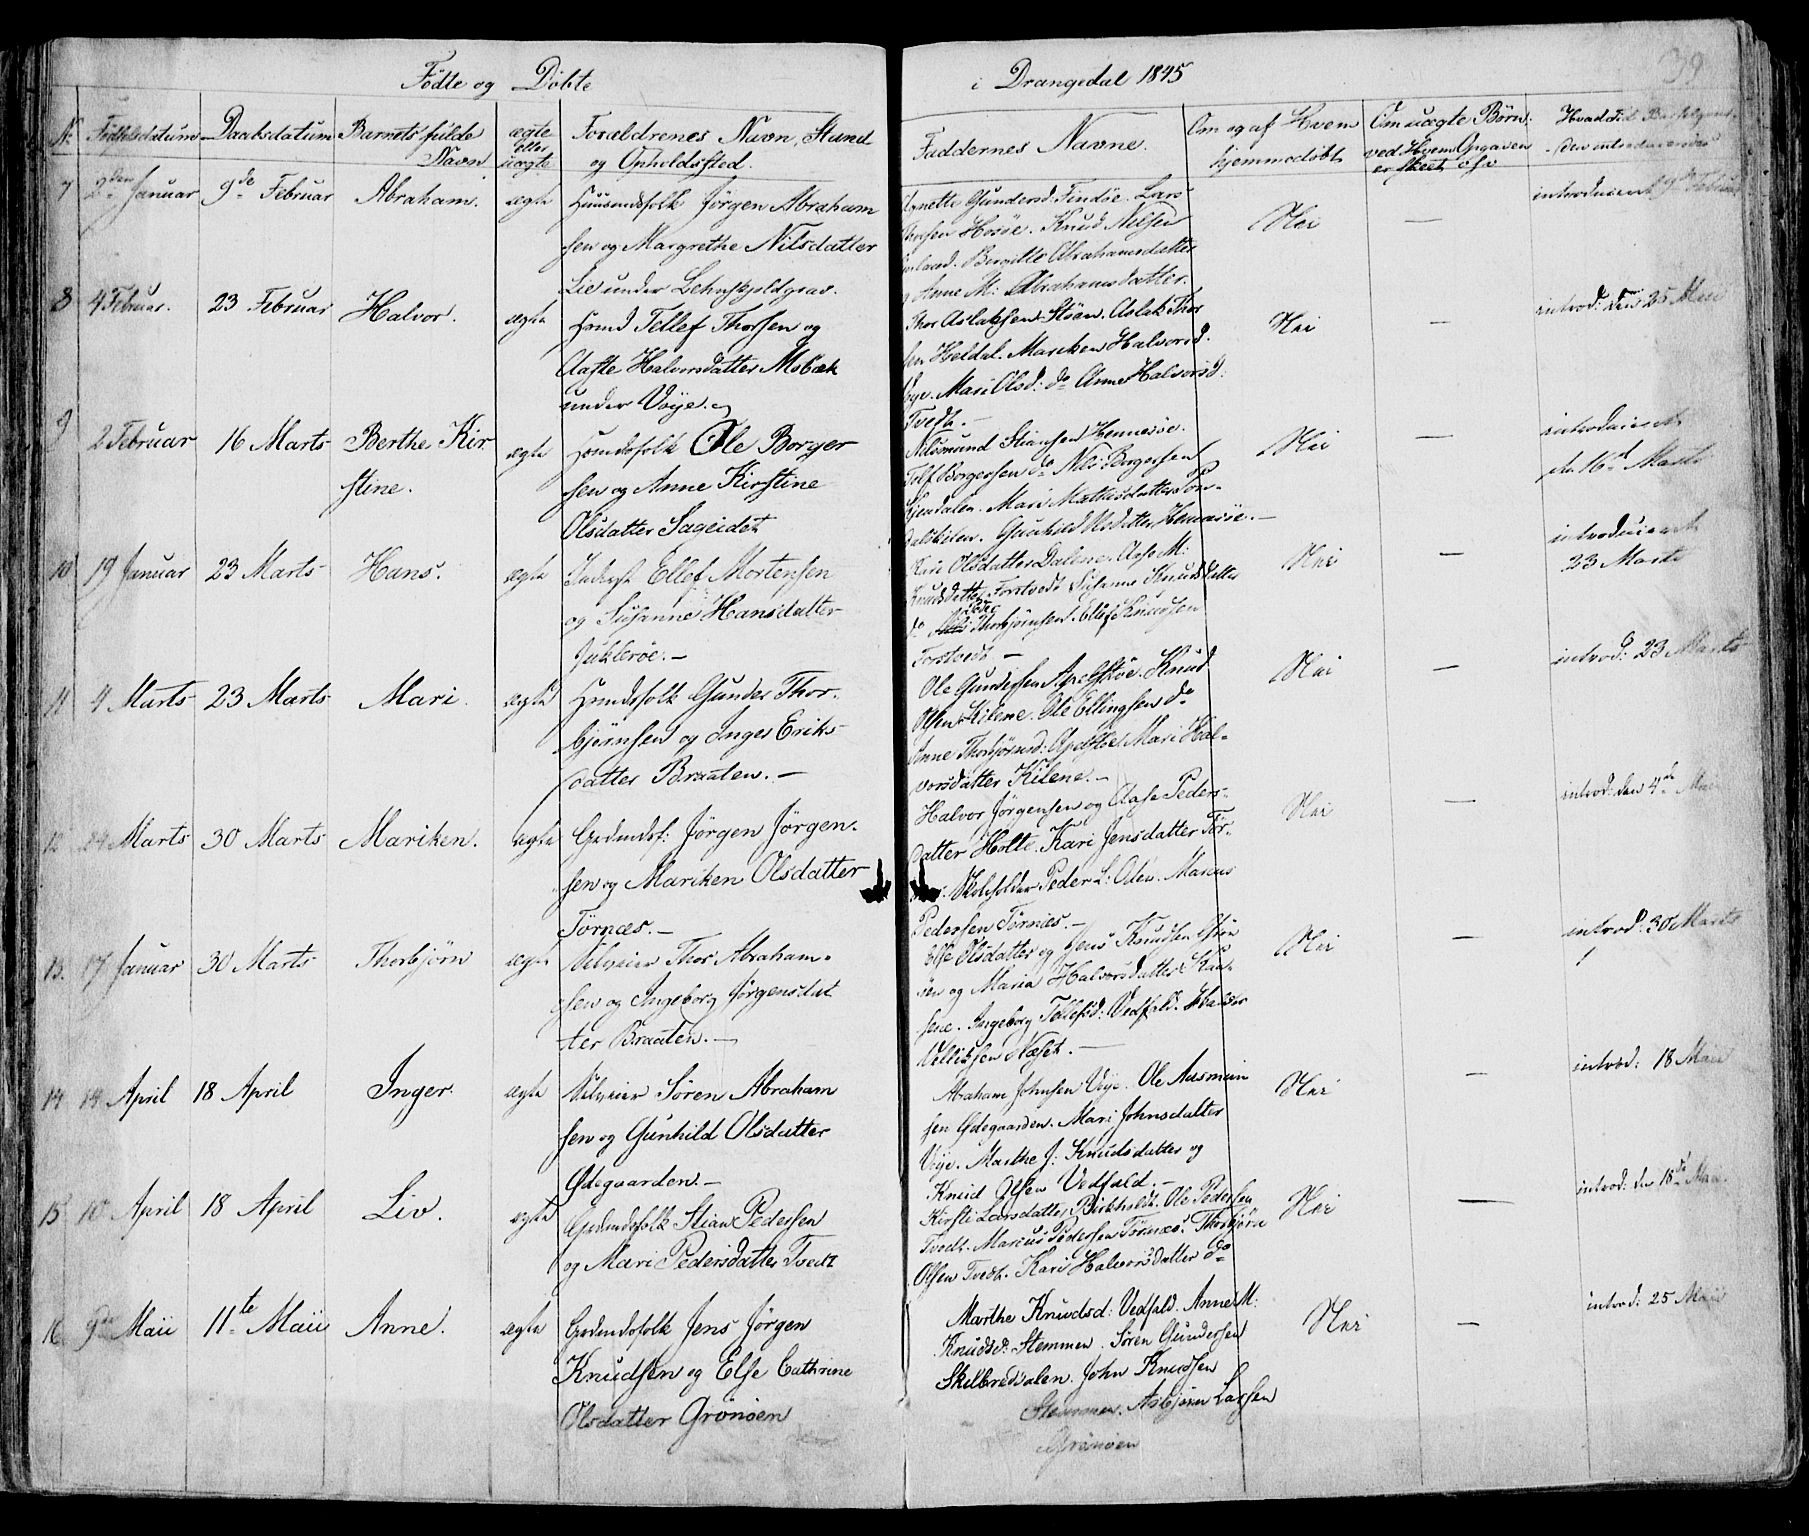 Födte og Döbte i Drangedal 1845
39
No Födselsdatum Daabsdatum Barnets fulde Navn ægte eller uægte Forældrenes Navn, Stand og Opholdssted. Faddernes Navne. Om og af Hvem hjemmedöbt Om uægte Börn ved Hvem Opgaven er skeet osv
7 2den Januar 9de Februar Abraham. ægte Huusmdsfolk Jörgen Abraham
sen og Margrethe Nilsdatter
Lie under
Gundersd: Lars
Knud Nilsen
Abrahamsdatter
Anne M: Abrahamsdatter.
Nei —
introduceret 9de Februar
8 4 Februar. 23 Februar Halvor. ægte Tellef Thorsen og
Aaste Halvorsdatter Mobæk
under Voje.
Thor Aslaksen Stöen. Aslak Thor
sen Heldal. Mariken Halvorsd.
Voje. Mari Olsd: do Anne Halvorsd:
Tvedt. —
Nei —
introd: den 25 Maii
9 2 Februar 16 Marts Berthe Kir
stine. ægte Gomdsfolk Ole Borger
sen og Anne Kirstine
Olsdatter Sageidet
Stiansen
Borgersen do Nils Borgersen
Mari Mathisdatter
Gunhild
Nei —
introduceret
den 16de Marts
10 19 Januar 23 Marts Hans. ægte Inderst Ellef Mortensen
og Susanne Hansdatter
Kari Olsdatter Dalene. Aase M:
Knudsdatter Forstvedt Susanne Knudsdatter
do Thorbjörnsen. Ellef Knudsen
Forstvedt —
Nei —
introduceret
23 Marts
11 4 Marts 23 Marts Mari. ægte Gunder Thor
björnsen og Inger Eriks
datter Braaten. —
Ole Gundersen Knud
Olsen Kilene. Ole Ellingsen do
Anne Thorbjörnsd: Mari Hal-
vorsdatter Kilene. —
Nei —
introd: 23 Marts
12 Marts 30 Marts Mariken. ægte Grdmdsf: Jörgen Jörgen-
sen og Mariken Olsdatter
Törnæs. —
Halvor Jörgensen og Aase Peders-
datter Holte. Kari Jensdatter Tör-
Skoleholder Peder L: Oden. Marcus
Pedersen Törnæs. —
Nei —
introd: den 4de Maii
13. 17 Januar 30 Marts Thorbjörn ægte Selveier Thor Abraham-
sen og Ingeborg Jörgensdat
ter Braaten. —
Else Olsdatter og Jens Knudsen
og Maria Halvorsdatter
Ingeborg Tellefsd: Vedfald. Halvor
Næset. —
Nei —
introd: 30 Marts
14 14 April 18 April Inger. ægte Selveier Sören Abraham
sen og Gunhild Olsdatter
Ödegaarden. —
Abraham Johnsen Voje. Ole Aasmun
sen Ödegaarden. Mari Johnsdatter
Voje. Marthe J: Knudsdatter og
Knud Olsen Vedfald. —
Nei —
introd: 18 Maii
15 10 April 18 April Liv. ægte Grdmdsfolk Stian Pedersen
og Mari Pedersdatter Tvedt
Kirsti Larsdatter Birkholdt. Ole Pedersen
Tvedt. Marcus Pedersen Törnæs. Thorbjörn
Olsen Tvedt. Kari Halvorsdatter do
Nei —
introd: den 18de Maii
16 9de Maii 11te Maii Anne. ægte Grdmdsfolk Jens Jörgen
Knudsen og Else Cathrine
Olsdatter Grönöen
Marthe Knudsd: Vedfald. Anne M:
Knudsd: Stemmen. Sören Gundersen
Skelbredsalen. John Knudsen
Stemmen. Asbjörn Larsen
Grönöen
Nei —
introd: 25 Maii